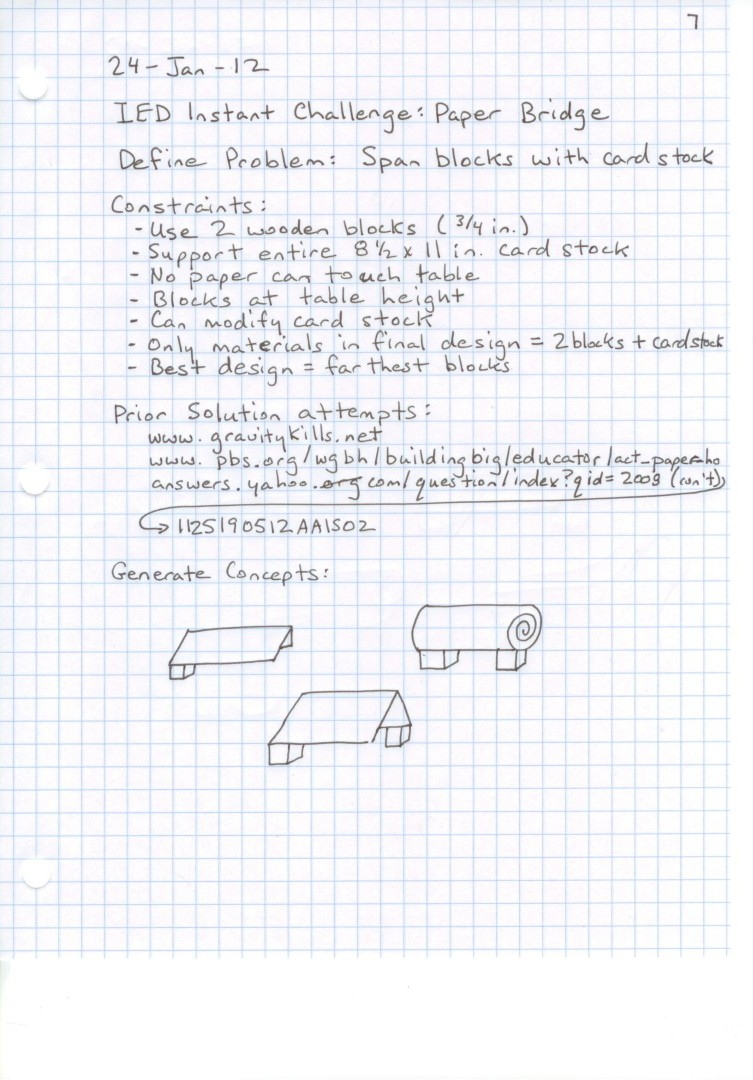 7
24-Jan-12
IED Instant Challenge: Paper Bridge
Define Problem: Span blocks with card stock
Constraints:
- Use 2 wooden blocks (3/4 in.)
- Support entire 8 1/2 x 11 in. card stock
- No paper can touch table
- Blocks at table height
- Can modify card stock
- Only materials in final design = 2 blocks + cardstock
- Best design = farthest blocks
Prior Solution attempts:
www.gravitykills.net
www.pbs.org/wgbh/buildingbig/educator/act_paper_ho
answers.yahoo.org com/question/index?qid=2009 (con't)
11251905 12AA1SO2
Generate Concepts: